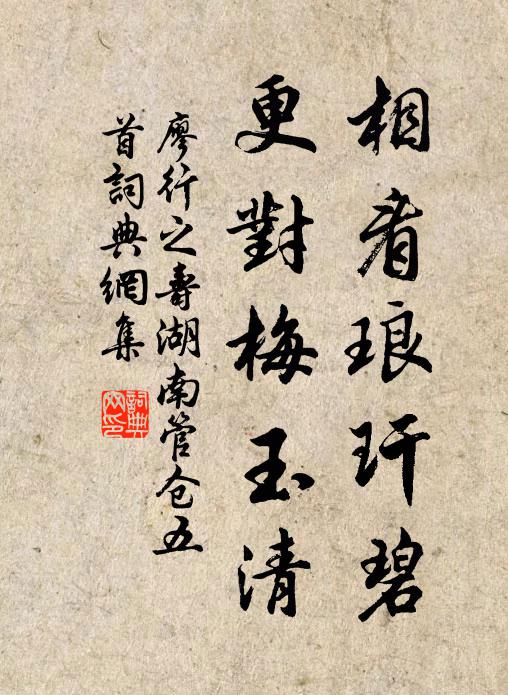 相看琅玕碧
更對梅玉清
廖行之壽湖南管仓五
首詞典網集
詞典网印